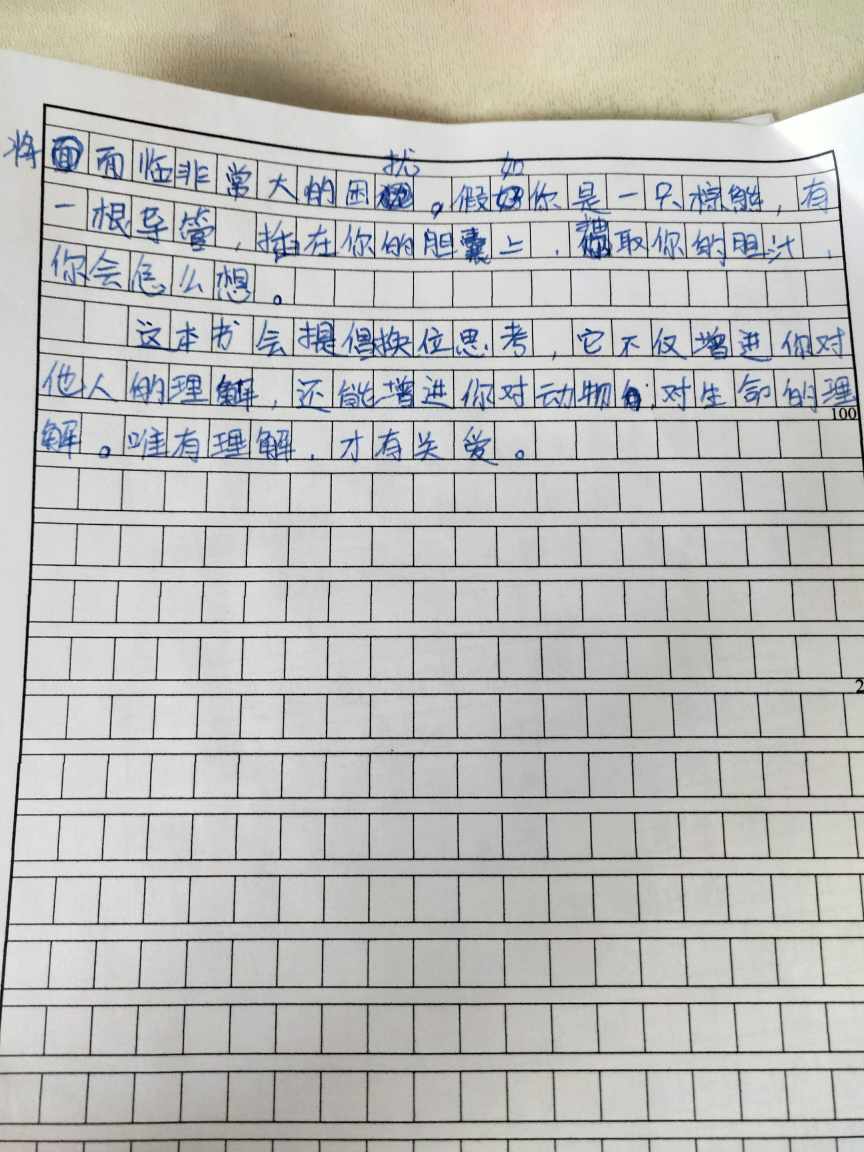 将面临非常大的困扰。假如你是一只棕熊，有
一根导管，插在你的胆囊上，取你的胆汁，
你会怎么想。
这本书会提倡换位思考，它不仅增进你对
他人的理解，还能增进你对动物，对生命的理
100
解。唯有理解，才有关爱。
2